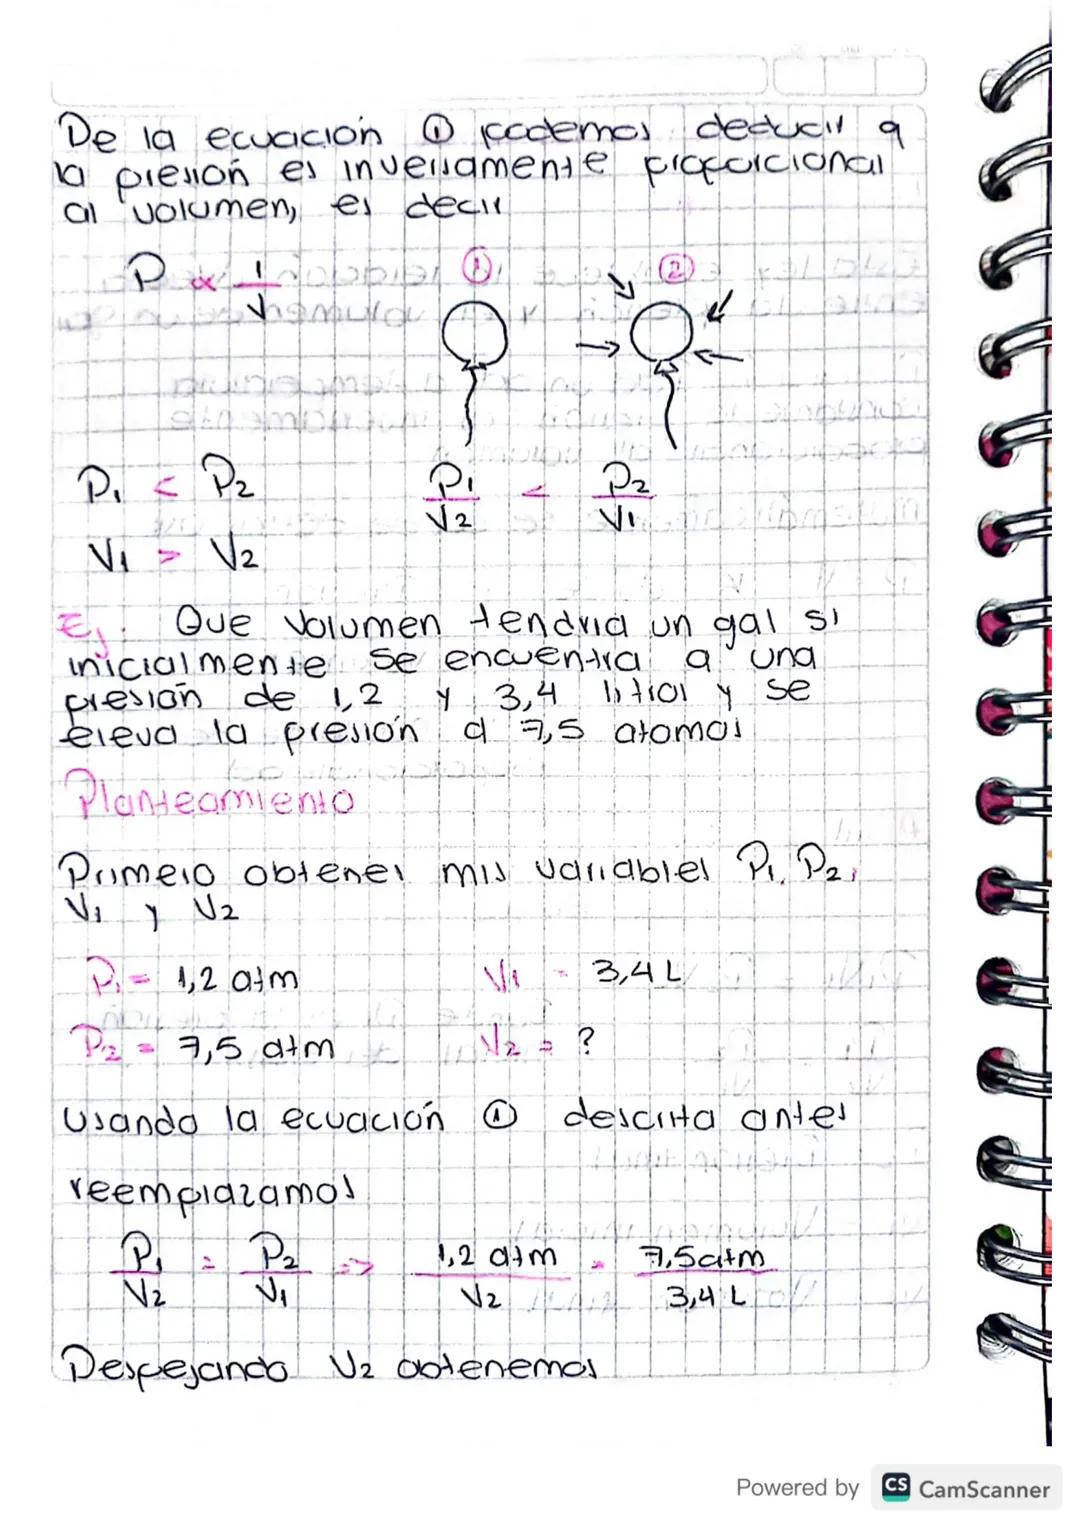 De la ecuación ① podemos deducir q
la presión es inversamente proporcional
al volumen, es decir
P ∝ 1/V
① ②
P₁ < P₂
P₁/V₂ < P₂/V₁
V₁ > V₂
Ej: Que volumen tendria un gas si
inicialmente se encuentra a una
presión de 1,2 y 3,4 litros y se
eleva la presión a 7,5 atomos
Planteamiento
Primero obtener mis variables P₁, P₂,
V₁ y V₂
P₁ = 1,2 atm V₁ = 3,4 L
P₂ = 7,5 atm V₂ = ?
Usando la ecuación ① descrita antes
reemplazamos
P₁/V₂ = P₂/V₁ => 1,2 atm/V₂ = 7,5 atm/3,4 L
Despejando V₂ obtenemos
Powered by CS CamScanner